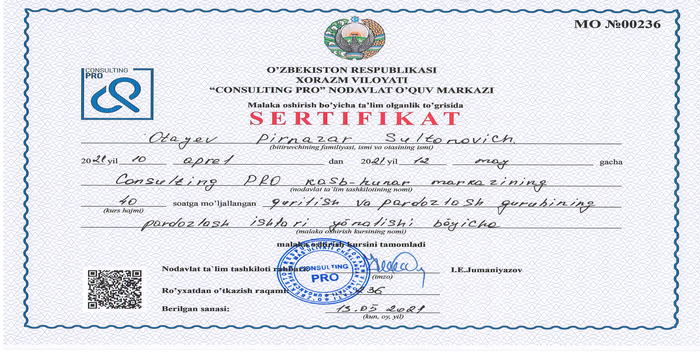 MO №00236
CONSULTING
PRO
O'ZBEKISTON RESPUBLIKASI
XORAZM VILOYATI
"CONSULTING PRO" NODAVLAT O'QUV MARKAZI
Malaka oshirish bo'yicha ta'lim olganlik to'grisida
SERTIFIKAT
Otayev Pirnazar Sultonovich
(bitiruvchining familyasi, ismi va otasining ismi)
2021 yil 10 aprel dan 2021 yil 12 may gacha
Consulting PRO kasb-hunar markazining
(nodavlat ta`lim tashkilotining nomi)
40 soatga mo'ljallangan qurilish va pardozlash guruhining
(kurs hajmi)
pardozlash ishlari yo'nalishi bo'yicha
(malaka oshirish kursining nomi)
malaka oshirish kursini tamomladi
Nodavlat ta`lim tashkiloti rahbari I.E.Jumaniyazov
(imzo)
CONSULTING
PRO
Ro'yxatdan o'tkazish raqami 236
Berilgan sanasi: 13.05 2021
(kun, oy, yil)